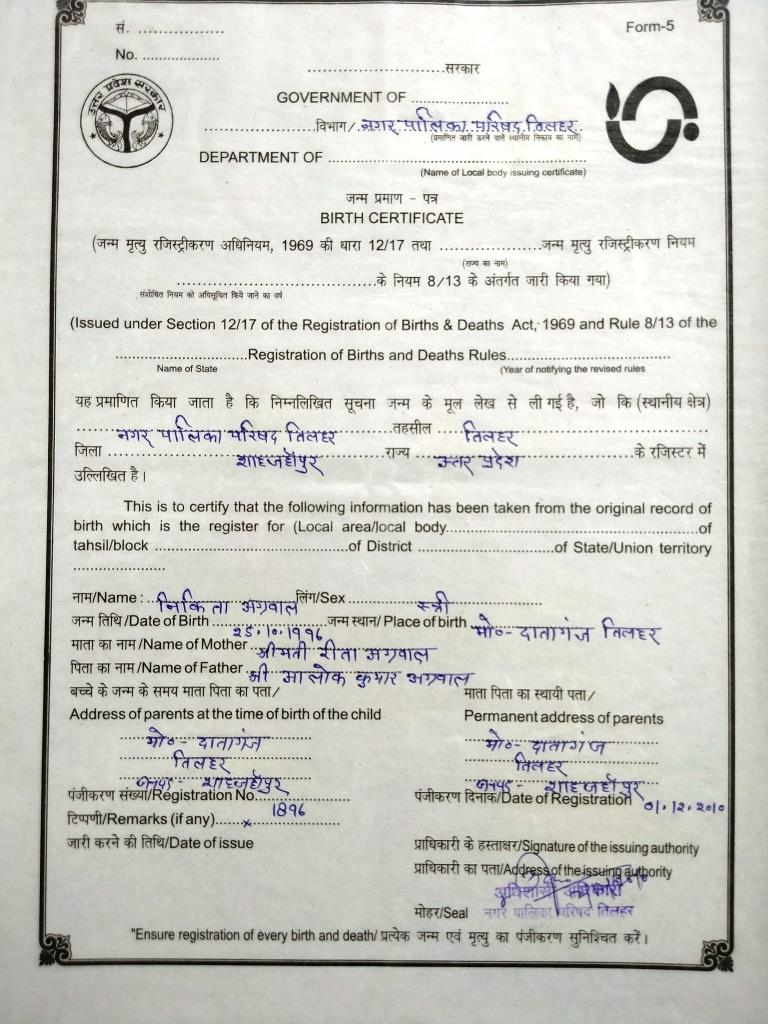 सं. .................
Form-5
No. ...................
उत्तर प्रदेश सरकार
..........................सरकार
GOVERNMENT OF ........................
.....................विभाग/ नगर पालिका परिषद तिलहर
(प्रमाणित जारी करने वाले स्थानीय निकाय का नाम)
DEPARTMENT OF ................................................................
(Name of Local body issuing certificate)
जन्म प्रमाण - पत्र
BIRTH CERTIFICATE
(जन्म मृत्यु रजिस्ट्रीकरण अधिनियम, 1969 की धारा 12/17 तथा ....................जन्म मृत्यु रजिस्ट्रीकरण नियम
(राज्य का नाम)
.......................................के नियम 8/13 के अंतर्गत जारी किया गया)
संशोधित नियम को अधिसूचित किये जाने का वर्ष
(Issued under Section 12/17 of the Registration of Births & Deaths Act, 1969 and Rule 8/13 of the
.................................Registration of Births and Deaths Rules.........................................
Name of State (Year of notifying the revised rules
यह प्रमाणित किया जाता है कि निम्नलिखित सूचना जन्म के मूल लेख से ली गई है, जो कि (स्थानीय क्षेत्र)
नगर पालिका परिषद तिलहर तहसील तिलहर
जिला शाहजहाँपुर राज्य उत्तर प्रदेश के रजिस्टर में
उल्लिखित है।
This is to certify that the following information has been taken from the original record of
birth which is the register for (Local area/local body...............................................................of
tahsil/block ................................................of District ..................................of State/Union territory
.......................
नाम/Name : निकिता अग्रवाल लिंग/Sex स्त्री
जन्म तिथि /Date of Birth 25.10.1996 जन्म स्थान/ Place of birth मो०- दातागंज तिलहर
माता का नाम /Name of Mother श्रीमती रीता अग्रवाल
पिता का नाम /Name of Father श्री आलोक कुमार अग्रवाल
बच्चे के जन्म के समय माता पिता का पता/ माता पिता का स्थायी पता/
Address of parents at the time of birth of the child Permanent address of parents
मो०- दातागंज मो०- दातागंज
तिलहर तिलहर
जनपद - शाहजहाँपुर जनपद - शाहजहाँपुर
पंजीकरण संख्या/Registration No. 1896 पंजीकरण दिनांक/Date of Registration 01.12.2010
टिप्पणी/Remarks (if any) x
जारी करने की तिथि/Date of issue प्राधिकारी के हस्ताक्षर/Signature of the issuing authority
प्राधिकारी का पता/Address of the issuing authority
अधिशासी अधिकारी
मोहर/Seal नगर पालिका परिषद तिलहर
"Ensure registration of every birth and death/ प्रत्येक जन्म एवं मृत्यु का पंजीकरण सुनिश्चित करें।